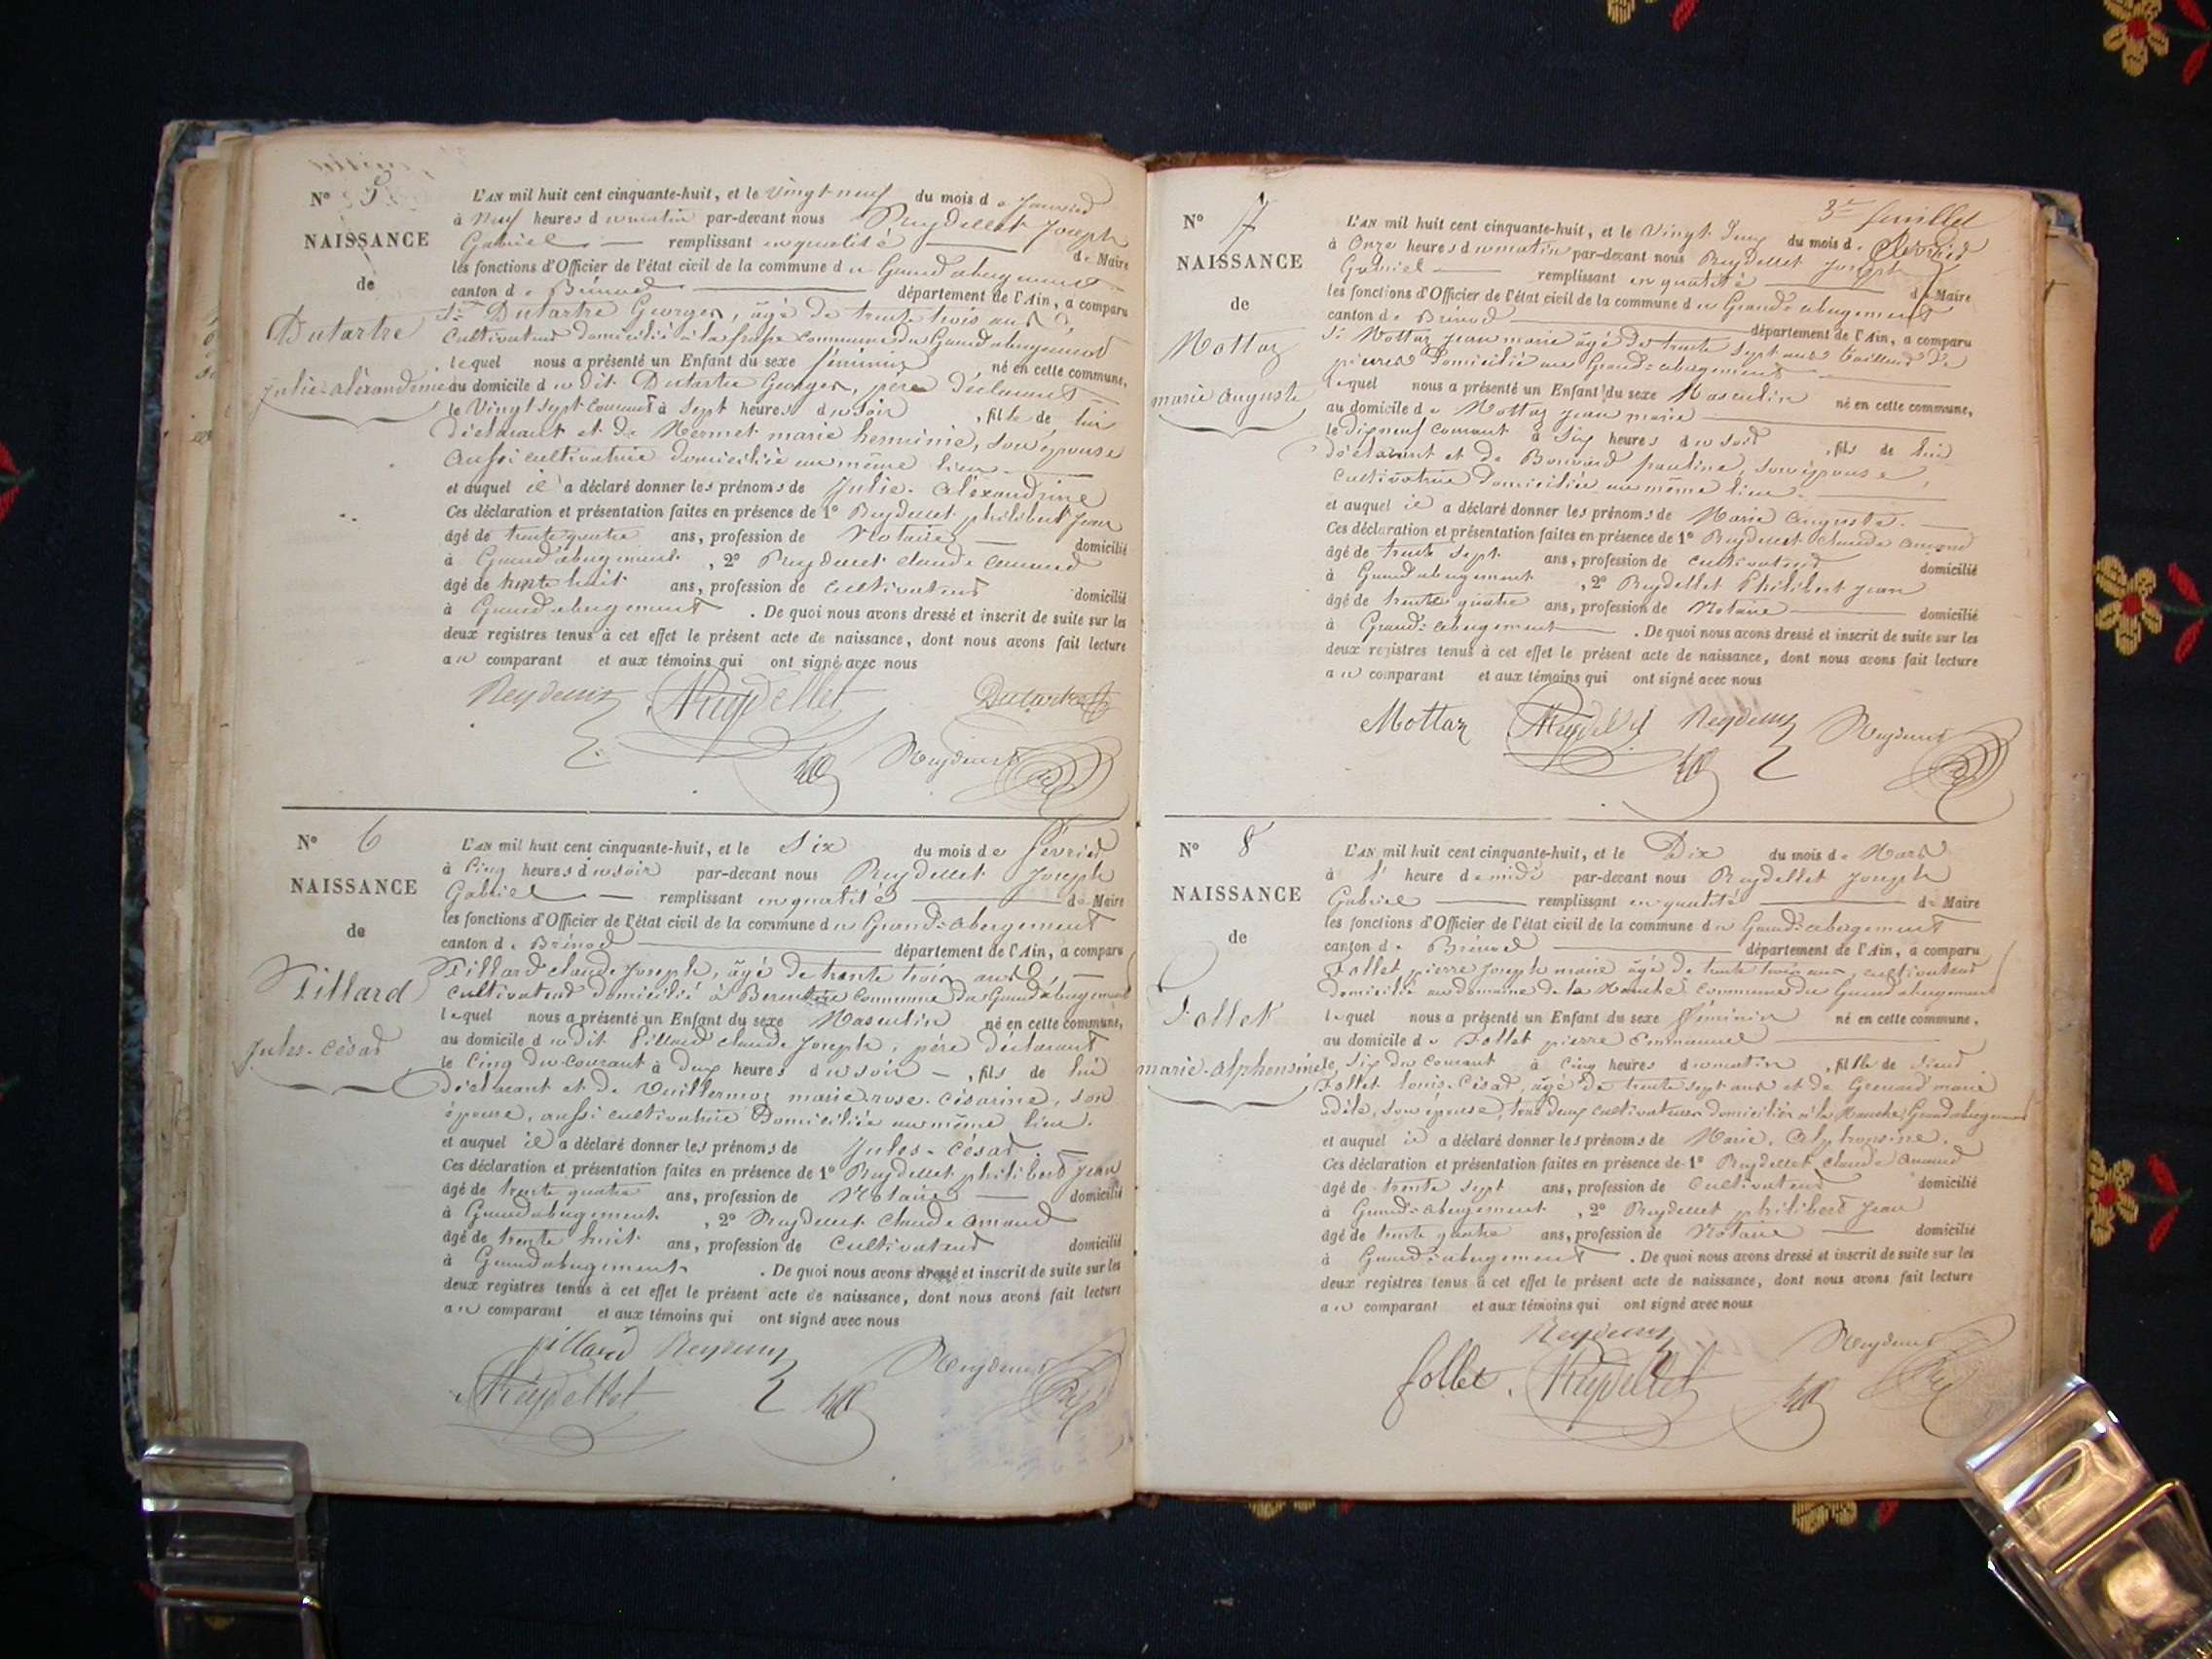 N° 5
NAISSANCE
de
Dutartre
Julie-aléxandrine
L'AN mil huit cent cinquante-huit, et le Vingt-neuf du mois de Janvier
à Neuf heures du matin par-devant nous Reydellet Joseph
Gabriel remplissant en qualité de Maire
les fonctions d'Officier de l'état civil de la commune du Grand abergement
canton de Brénod département de l'Ain, a comparu
Sr Dutartre Georges, âgé de trente trois ans
Cultivateur domicilié à la commune du Grand abergement
lequel nous a présenté un Enfant du sexe féminin né en cette commune,
au domicile du dit Dutartre Georges, père déclarant
le Vingt sept courant à Sept heures du soir, fille de lui
déclarant et de Mermet marie herminie, son épouse
aussi cultivatrice domiciliée au même lieu
et auquel il a déclaré donner les prénoms de Julie. Aléxandrine
Ces déclaration et présentation faites en présence de 1° Reydellet philibert Jean
âgé de trente quatre ans, profession de Notaire domicilié
à Grand abergement, 2° Reydellet claude amand
âgé de trente huit ans, profession de cultivateur domicilié
à Grand abergement. De quoi nous avons dressé et inscrit de suite sur les
deux registres tenus à cet effet le présent acte de naissance, dont nous avons fait lecture
au comparant et aux témoins qui ont signé avec nous
Reydellet Reydellet Dutartre
Reydellet
N° 6
NAISSANCE
de
Pillard
Jules-César
L'AN mil huit cent cinquante-huit, et le Six du mois de février
à Cinq heures du soir par-devant nous Reydellet Joseph
Gabriel remplissant en qualité de Maire
les fonctions d'Officier de l'état civil de la commune du Grand-abergement
canton de Brénod département de l'Ain, a comparu
Pillard claude Joseph, âgé de trente trois ans
cultivateur domicilié à commune du Grand abergement
lequel nous a présenté un Enfant du sexe Masculin né en cette commune,
au domicile du dit Pillard claude Joseph, père déclarant
le Cinq du courant à deux heures du soir, fils de lui
déclarant et de Vuillermoz marie-rose-césarine, son
épouse, aussi cultivatrice Domiciliée au même lieu.
et auquel il a déclaré donner les prénoms de Jules-César.
Ces déclaration et présentation faites en présence de 1° Reydellet philibert Jean
âgé de trente quatre ans, profession de Notaire domicilié
à Grand abergement, 2° Reydellet Claude amand
âgé de trente huit ans, profession de Cultivateur domicilié
à Grand abergement. De quoi nous avons dressé et inscrit de suite sur les
deux registres tenus à cet effet le présent acte de naissance, dont nous avons fait lecture
au comparant et aux témoins qui ont signé avec nous
pillard Reydellet Reydellet
Reydellet
3e feuillet
N° 7
NAISSANCE
de
Mottaz
marie auguste
L'AN mil huit cent cinquante-huit, et le Vingt Deux du mois de février
à Onze heures du matin par-devant nous Reydellet Joseph
Gabriel remplissant en qualité de Maire
les fonctions d'Officier de l'état civil de la commune du Grand-abergement
canton de Brénod département de l'Ain, a comparu
Sr Mottaz Jean marie âgé de trente sept ans tailleur de
pierres domicilié au Grand-abergement
lequel nous a présenté un Enfant du sexe Masculin né en cette commune,
au domicile de Mottaz Jean marie
le dix neuf courant à Six heures du soir, fils de lui
déclarant et de pauline, son épouse,
cultivatrice domiciliée au même lieu.
et auquel il a déclaré donner les prénoms de Marie auguste.
Ces déclaration et présentation faites en présence de 1° Reydellet claude amand
âgé de trente sept ans, profession de cultivateur domicilié
à Grand abergement, 2° Reydellet Philibert Jean
âgé de trente quatre ans, profession de Notaire domicilié
à Grand-abergement. De quoi nous avons dressé et inscrit de suite sur les
deux registres tenus à cet effet le présent acte de naissance, dont nous avons fait lecture
au comparant et aux témoins qui ont signé avec nous
Mottaz Reydellet Reydellet Reydellet
N° 8
NAISSANCE
de
Follet
marie-alphonsine
L'AN mil huit cent cinquante-huit, et le Dix du mois de Mars
à l' heure de midi par-devant nous Reydellet Joseph
Gabriel remplissant en qualité de Maire
les fonctions d'Officier de l'état civil de la commune du Grand-abergement
canton de Brénod département de l'Ain, a comparu
Follet pierre Joseph marie âgé de trente trois ans, cultivateur
domicilié au domaine de la Manche commune du Grand abergement
lequel nous a présenté un Enfant du sexe féminin né en cette commune.
au domicile de Follet pierre Emmanuel
le Six du courant à Cinq heures du matin, fille de Sieur
Follet louis-César, âgé de trente sept ans et de marie
adèle, son épouse, tous deux cultivateurs domiciliés à la Manche, Grand abergement
et auquel il a déclaré donner les prénoms de Marie. Alphonsine.
Ces déclaration et présentation faites en présence de 1° Reydellet claude amand
âgé de trente sept ans, profession de Cultivateur domicilié
à Grand-abergement, 2° Reydellet philibert Jean
âgé de trente quatre ans, profession de Notaire domicilié
à Grand abergement. De quoi nous avons dressé et inscrit de suite sur les
deux registres tenus à cet effet le présent acte de naissance, dont nous avons fait lecture
au comparant et aux témoins qui ont signé avec nous
Reydellet Reydellet
follet. Reydellet